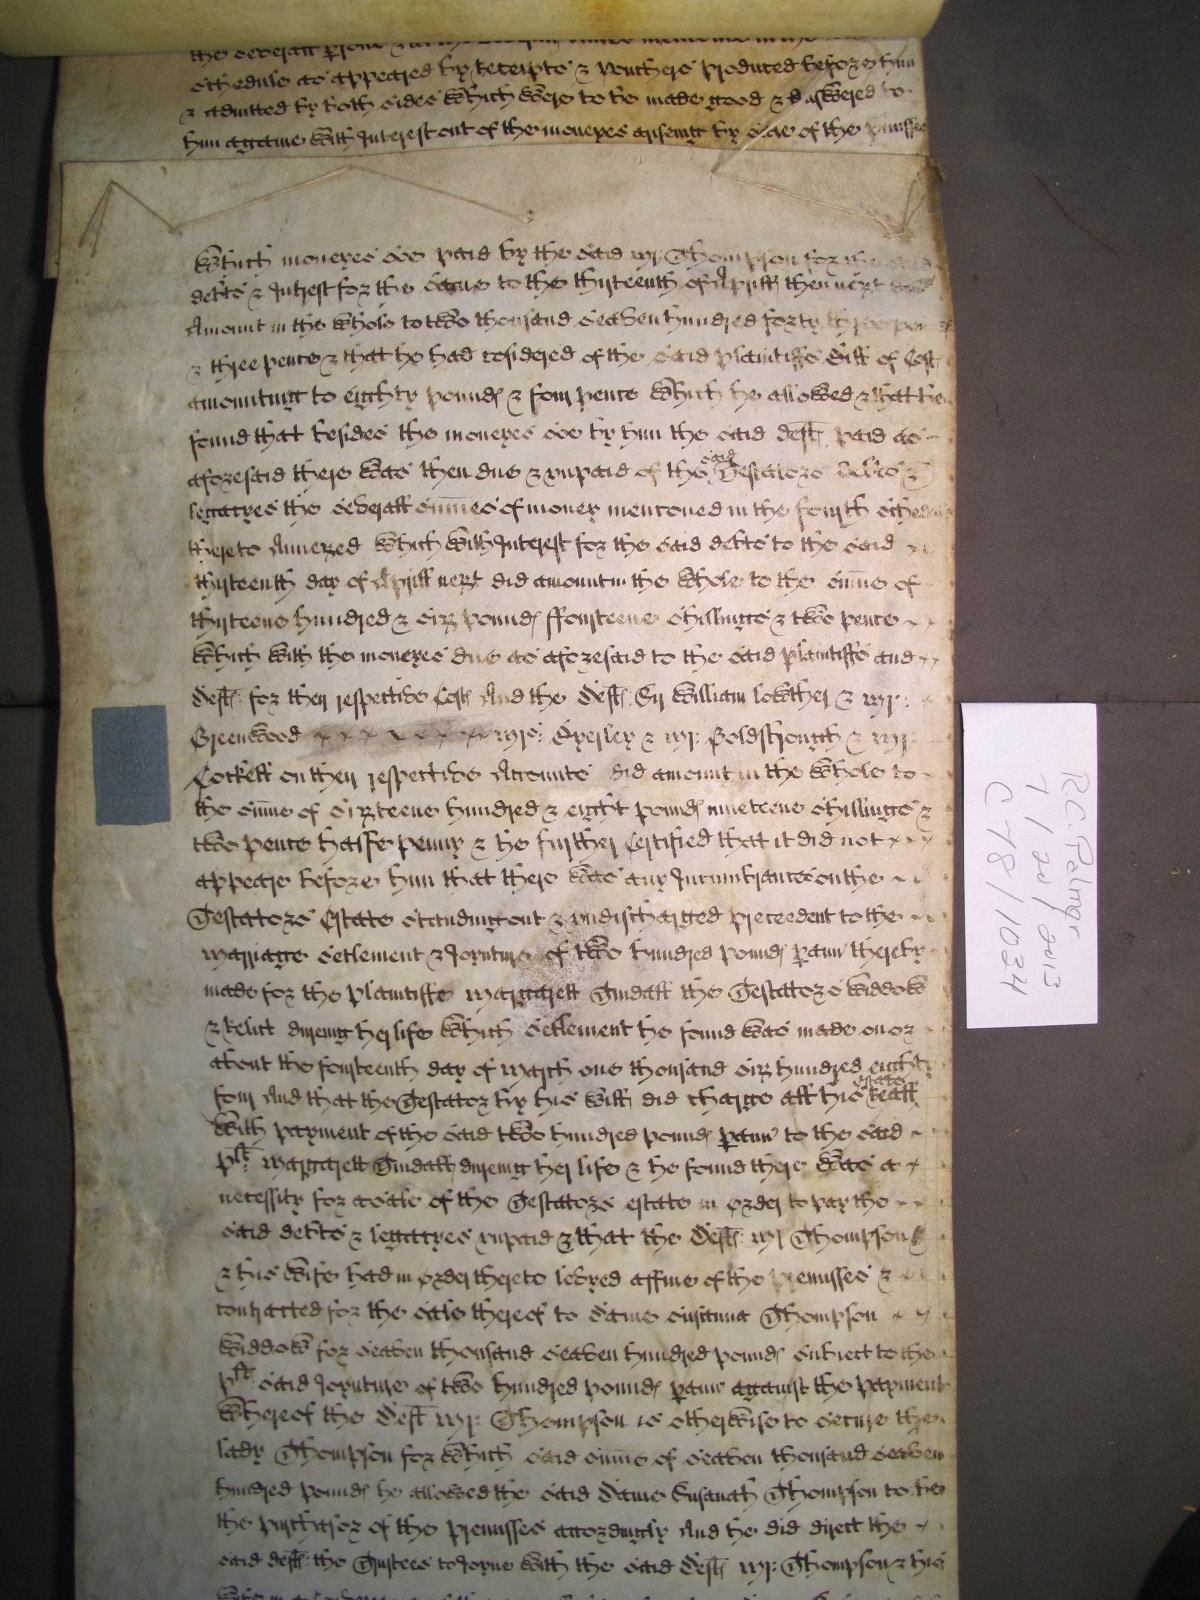 the severall
schedule as appeared by Receipts & vouchers produced before him
& admitted by both sides which were to be made good & answered to
him againe with Interest out of the moneyes ariseing by sale of the premisses
which moneyes soe paid by the said Mr: Thompson for the
debts & Intrest for the same to the thirteenth of Aprill then next
Amount in the whole to two thousand seaven hundred forty three pounds
& three pence & that he had considered of the said plaintiffs Bill of Costs
amounting to eighty pounds & four pence which he allowed & that he
found that besides the moneyes soe by him the said Deft: paid as
aforesaid there was then due & unpaid of the said Testators debts &
legacyes the severall summes of money mentoned in the fourth schedule
thereto Annexed which with Interest for the said debts to the said
thirteenth day of Aprill next did amount in the whole to the summe of
thirteene hundred & six pounds ffourteene shillings & two pence
which with the moneyes due as aforesaid to the said plaintiffs and
Defts: for their respective Costs And the Defts: Sir William Lowther & Mr:
Greenwood Mrs: Byerley & Mr: Goldsbrough & Mr:
Lockett on their respective Accounts did amount in the whole to
the summe of sixteene hundred & eight pounds nineteene shillings &
two pence halfe penny & he further Certified that it did not
appeare before him that there was any Incumbrances on the
Testators Estate standing out & undischarged precedent to the
marriage setlement & Joynture of two hundred pounds p ann thereby
made for the plaintiffe Margarett Tindall the Testators widdow
& relict dureing her life which setlement he found was made on or
about the fourteenth day of March one thousand six hundred eighty
four And that the Testator by his will did charge all his reall estate
with payment of the said two hundred pounds p ann to the said
plt: Margarett Tindall dureing her life & he found there was a
necessity for a sale of the Testators estate in order to pay the
said debts & legacyes unpaid & that the Defts: Mr Thompson
& his wife had in order thereto levyed a ffine of the premisses &
contracted for the sale thereof to Dame Susanna Thompson
widdow for seaven thousand seaven hundred pounds subiect to the
plts: said Joynture of two hundred pounds p ann against the payment
whereof the Deft: Mr: Thompson is otherwise to secure the
Lady Thompson for which said summe of seaven thousand seaven
hundred pounds he allowed the said Dame Susanah Thompson to be
the purchasor of the premisses accordingly And he did direct the
said Defts: the Trustees to Joyne with the said Defts: Mr: Thompson & his
RC. Palmer
7/20/2013
C 78/1034